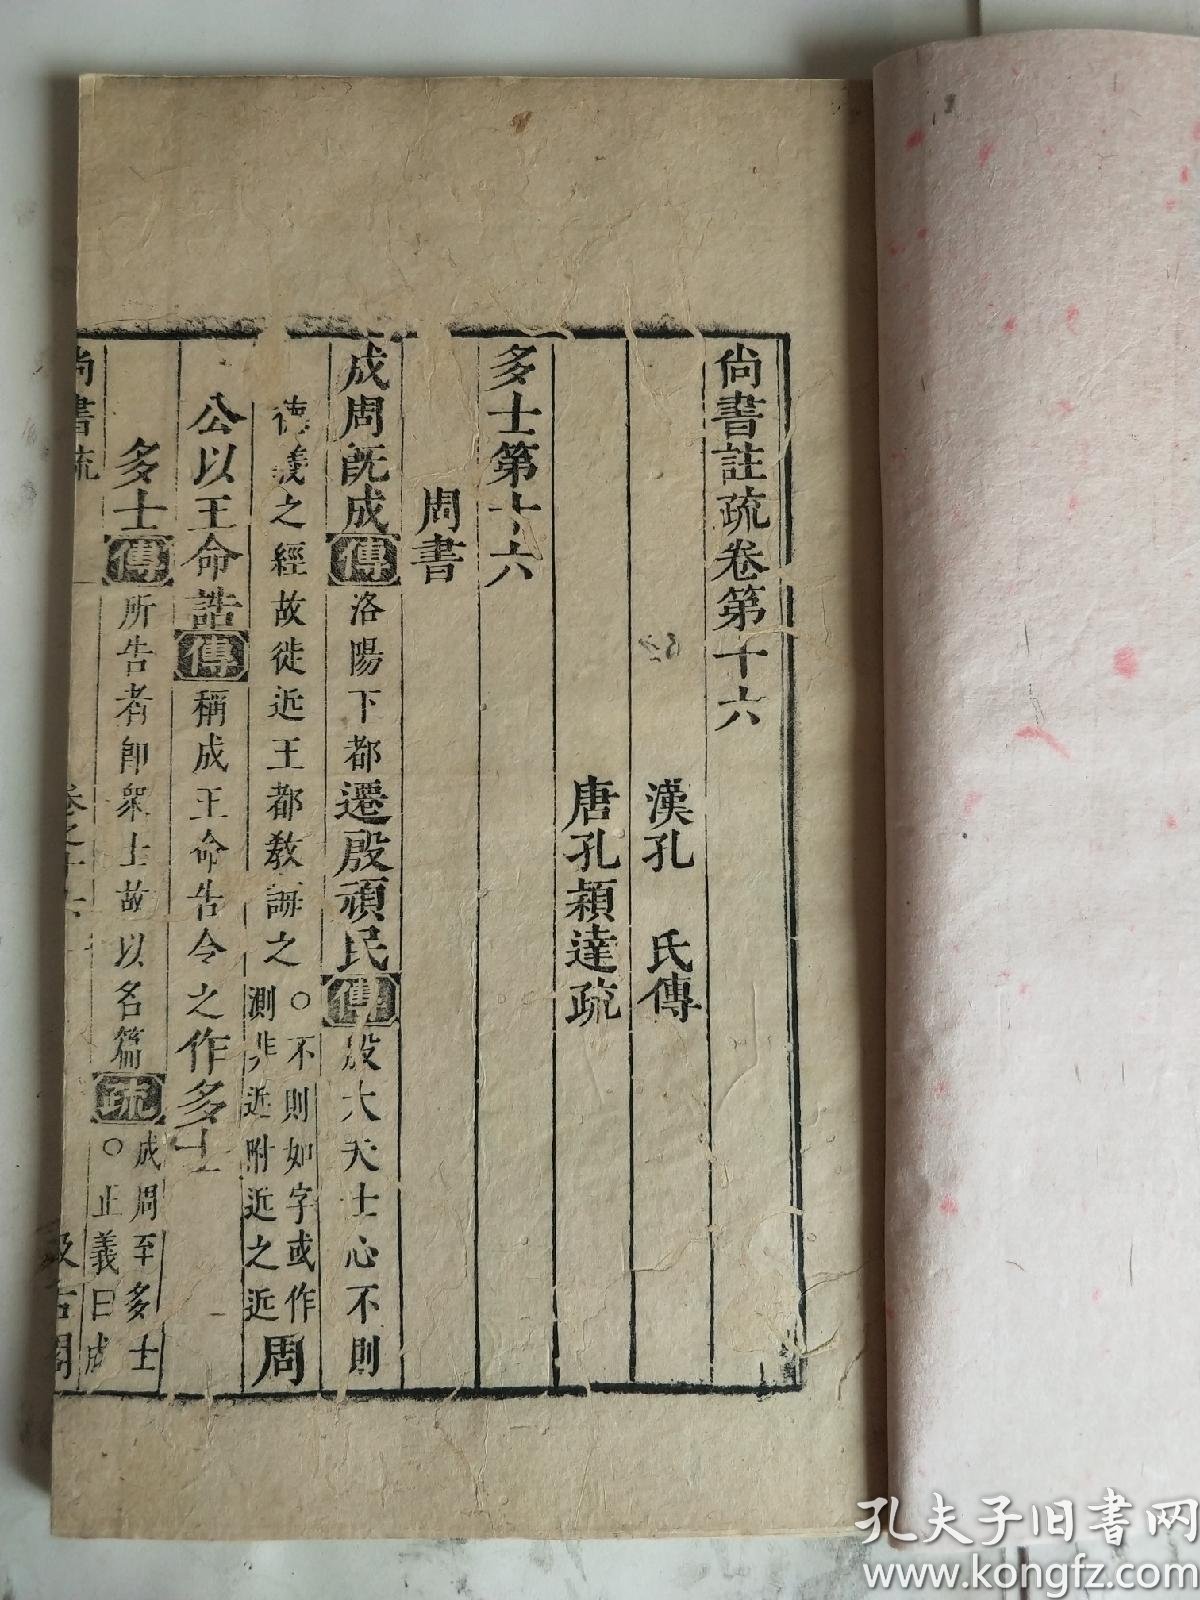 尚書註疏卷第十六
漢孔 氏傳
唐孔穎達疏
多士第十六
周書
成周旣成傳洛陽下都遷殷頑民傳殷大夫士心不則
德義之經故徙近王都教誨之○不則如字或作測非近附近之近周
公以王命誥傳稱成王命告令之作多士
多士傳所告者卽衆士故以名篇疏成周至多士○正義曰成
尚書疏 卷之十六 汲古閣
孔夫子旧书网
www.kongfz.com